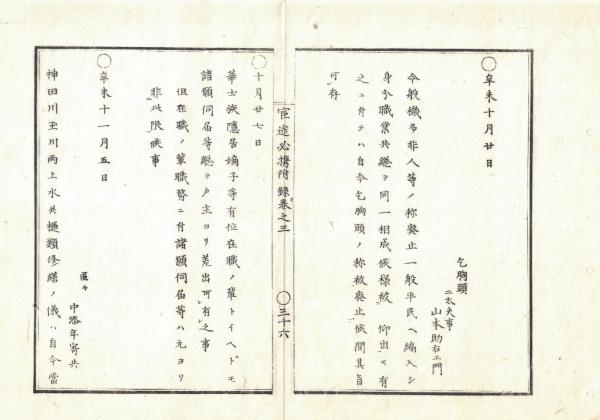 〇辛未十月廿日
乞胸頭
仁太夫事
山本助右エ門
今般穢多非人等ノ称廃止一般平民ヘ編入シ
身分職業共総テ同一相成候様被　仰出モ有
之ニ付テハ自今乞胸頭ノ称被廃止候間其旨
可存
宦途必携附録巻之三
〇三十六
〇十月廿七日
華士族隠居嫡子等有位在職ノ輩トイヘドモ
諸願伺届等総テ戸主ヨリ差出可有之事
但在職ノ輩職務ニ付諸願伺届等ハ元ヨリ
非此限候事
〇辛未十一月五日
区々
中添年寄共
神田川玉川両上水共樋類修繕ノ儀ハ自今当